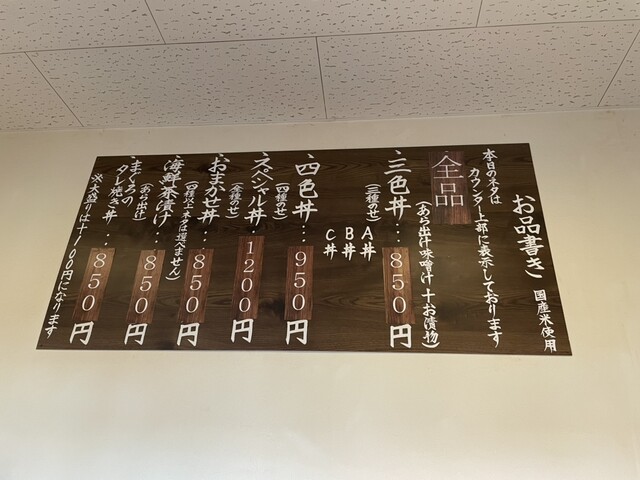 お品書き 国産米使用
本日のネタは
カウンター上部に表示しております
全品
(あら出汁味噌汁+お漬物)
三色丼…850円
(三種のせ)
A丼
B丼
C丼
四色丼…950円
(四種のせ)
スペシャル丼…1200円
(全種のせ)
おまかせ丼…850円
(四種以上 ネタは選べません)
海鮮茶漬け…850円
(あら出汁)
まぐろの
タレ焼き丼…850円
※大盛りは+100円になります